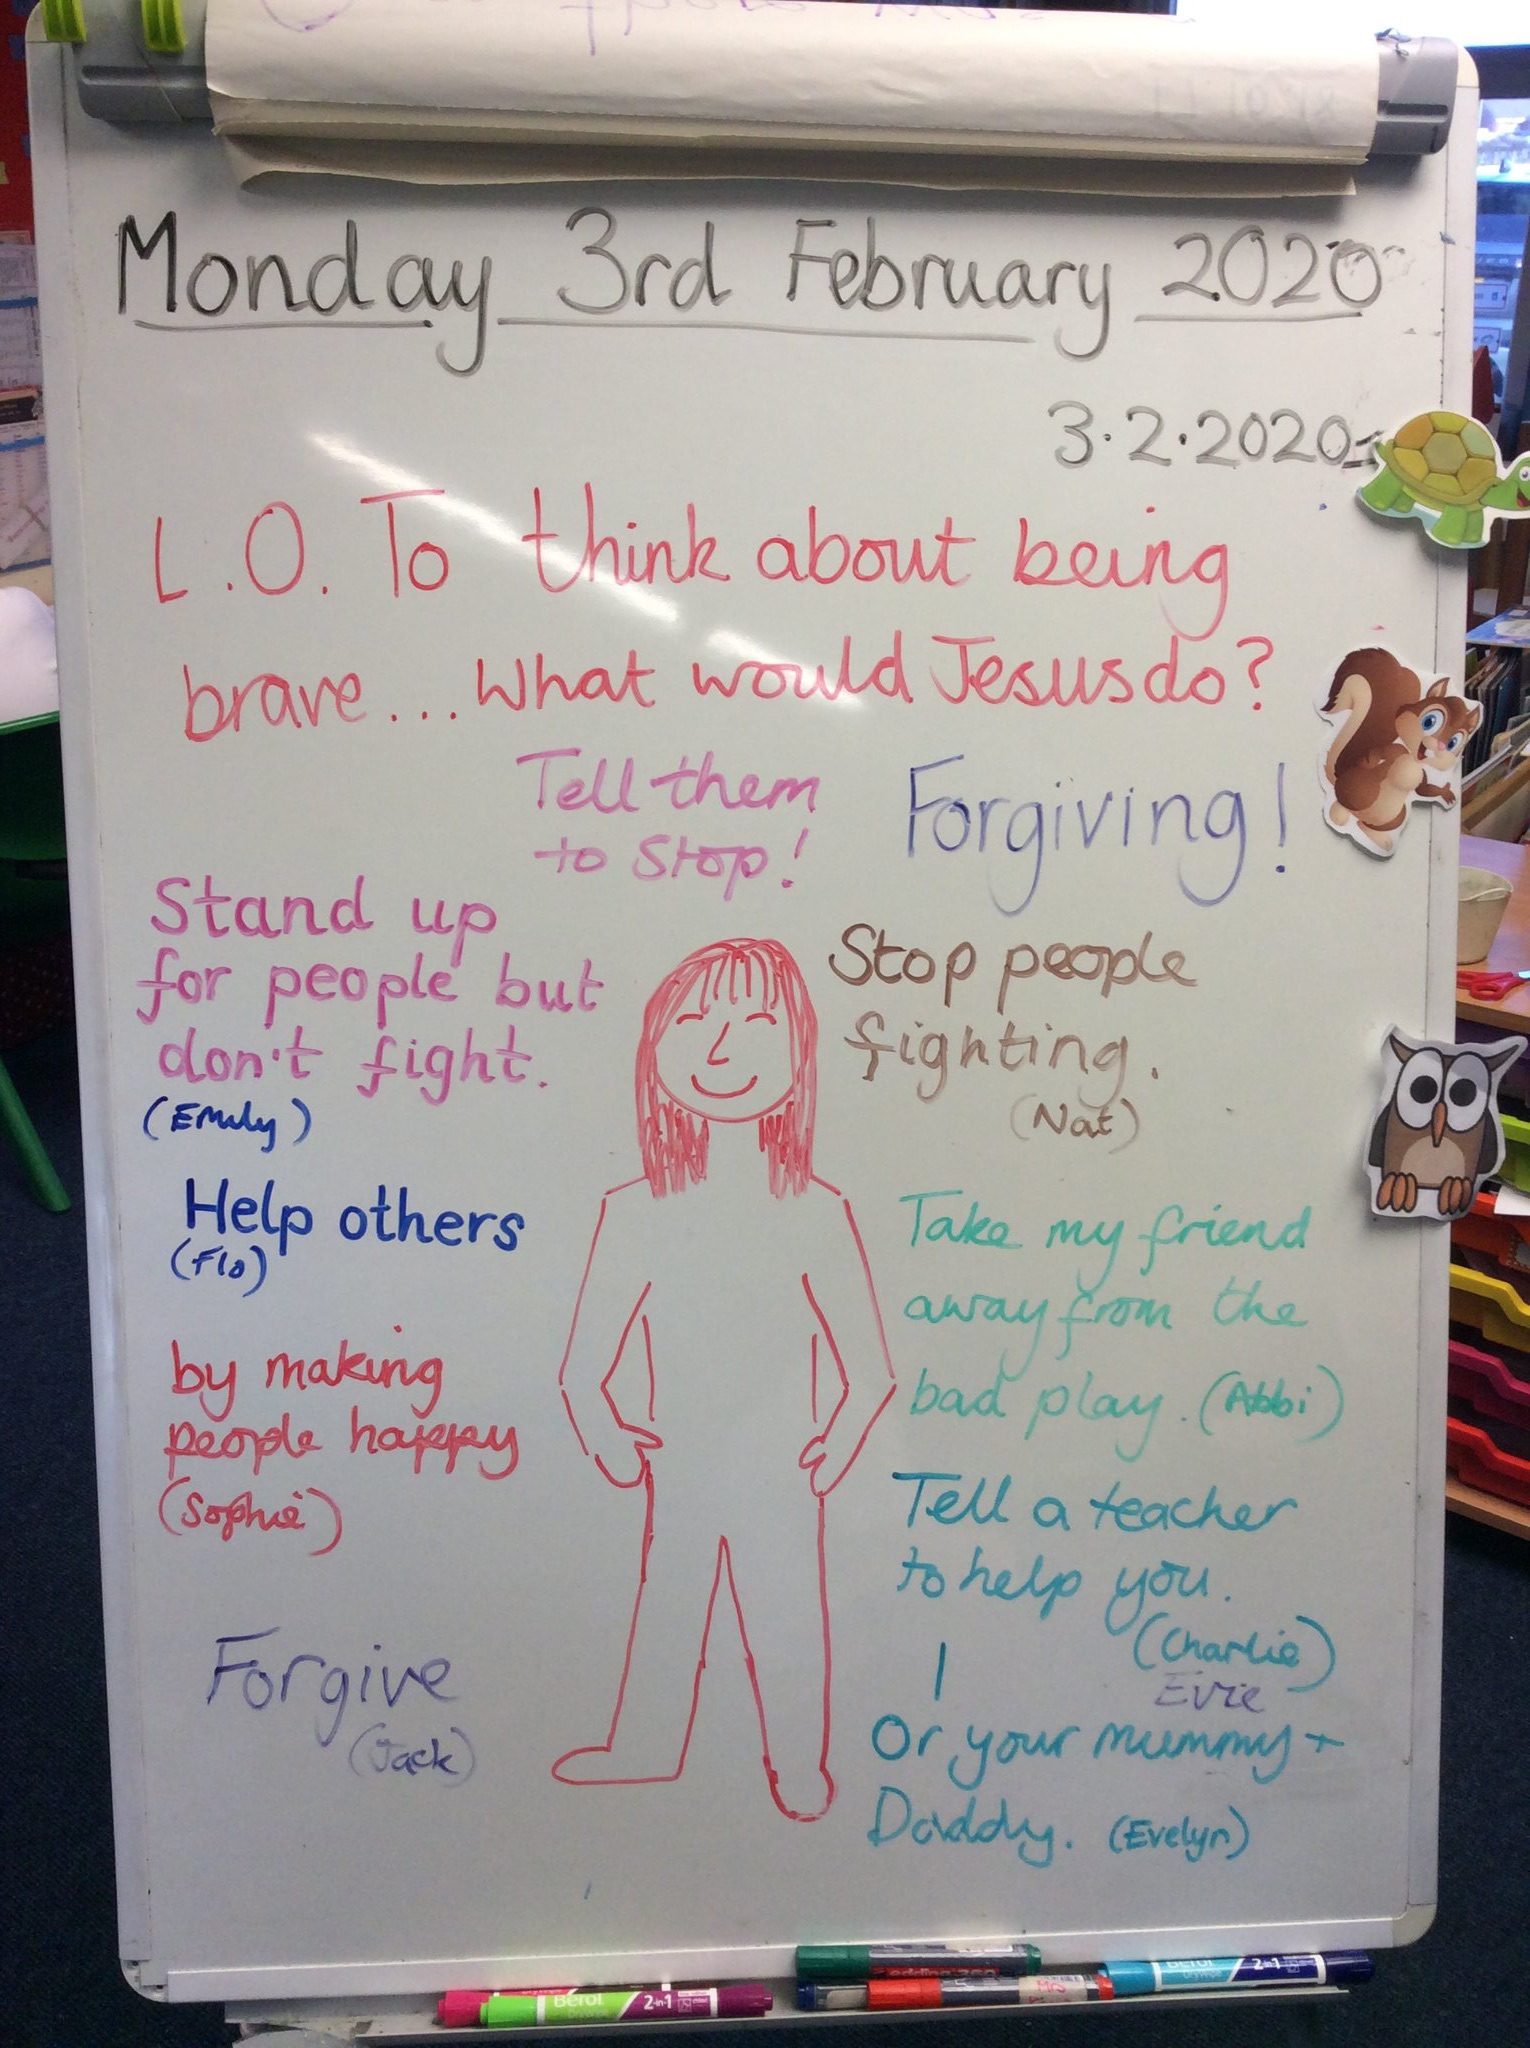 Monday 3rd February 2020
3.2.2020
L.O. To think about being
brave... What would Jesus do?
Tell them
to Stop!
Forgiving!
Stand up
for people but
don't fight.
(Emily)
Stop people
fighting.
(Nat)
Help others
(Flo)
Take my friend
away from the
bad play. (Abbi)
by making
people happy
(Sophie)
Tell a teacher
to help you.
(Charlie)
Evie
Forgive
(Jack)
Or your mummy +
Daddy. (Evelyn)
edding 360
Berol
2in1
Berol
2in1